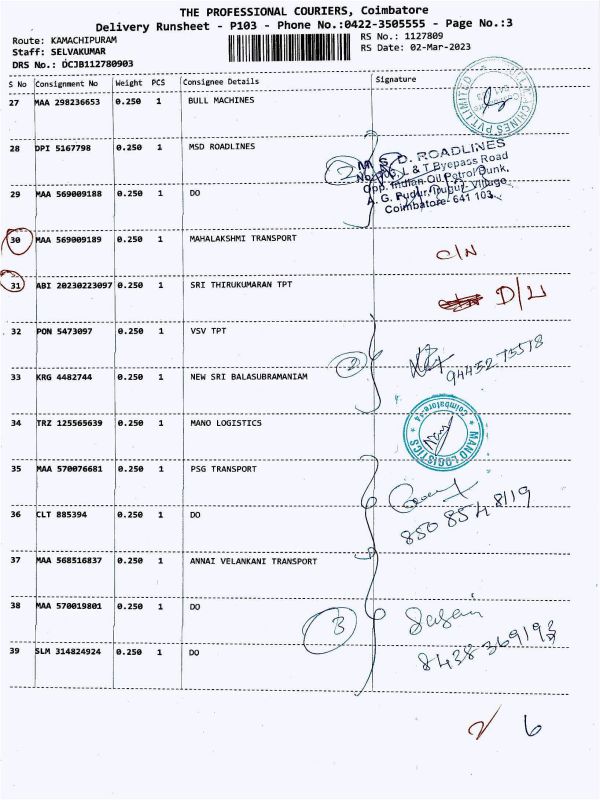 THE PROFESSIONAL COURIERS, Coimbatore
Delivery Runsheet - P103 - Phone No.:0422-3505555 - Page No.:3
Route: KAMACHIPURAM
Staff: SELVAKUMAR
DRS No.: DCJB112780903
RS No.: 1127809
RS Date: 02-Mar-2023
S No Consignment No Weight PCS Consignee Details Signature
27 MAA 298236653 0.250 1 BULL MACHINES
28 DPI 5167798 0.250 1 MSD ROADLINES
29 MAA 569009188 0.250 1 DO
M. S. D. ROADLINES
L & T Byepass Road
Opp. Indian Oil Petrol Bunk,
A. G. Pudur, Irugur Village
Coimbatore- 641 103
2
30 MAA 569009189 0.250 1 MAHALAKSHMI TRANSPORT C/N
31 ABI 20230223097 0.250 1 SRI THIRUKUMARAN TPT D/L
32 PON 5473097 0.250 1 VSV TPT
9445275578
2
33 KRG 4482744 0.250 1 NEW SRI BALASUBRAMANIAM
34 TRZ 125565639 0.250 1 MANO LOGISTICS
MANO LOGISTICS
Coimbatore-14
35 MAA 570076681 0.250 1 PSG TRANSPORT
36 CLT 885394 0.250 1 DO
8508548119
37 MAA 568516837 0.250 1 ANNAI VELANKANI TRANSPORT
38 MAA 570019801 0.250 1 DO
3
39 SLM 314824924 0.250 1 DO
8438369193
6